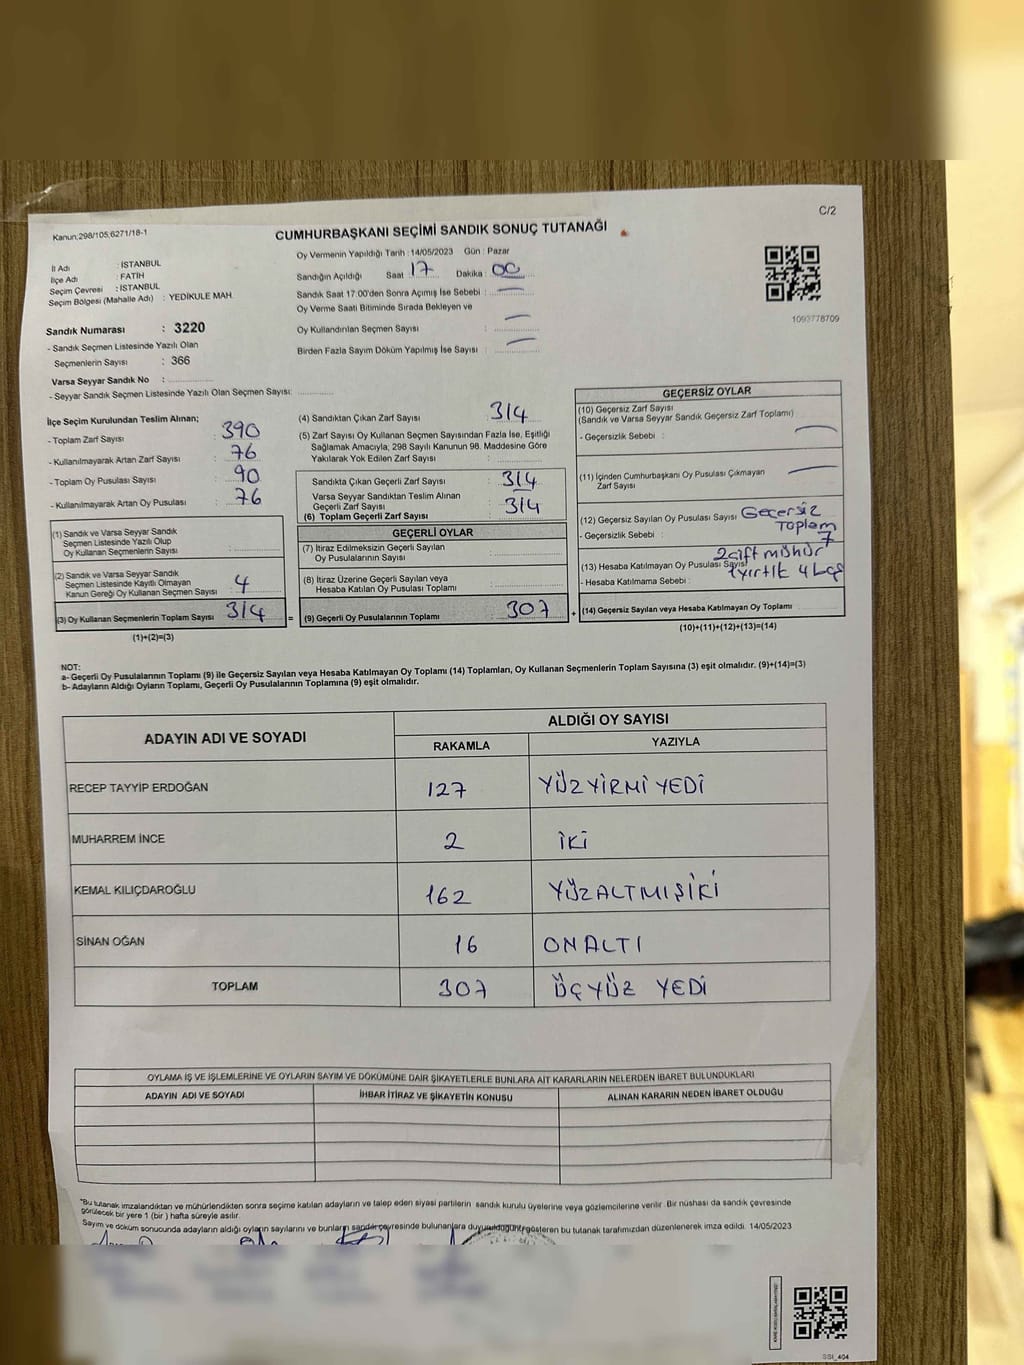 C/2
Kanun:298/105;6271/18-1
CUMHURBAŞKANI SEÇİMİ SANDIK SONUÇ TUTANAĞI
İl Adı : İSTANBUL
İlçe Adı : FATİH
Seçim Çevresi : İSTANBUL
Seçim Bölgesi (Mahalle Adı) : YEDİKULE MAH.
Oy Vermenin Yapıldığı Tarih : 14/05/2023 Gün : Pazar
Sandığın Açıldığı Saat : 17 Dakika : 00
Sandık Saat 17.00'den Sonra Açımış İse Sebebi : —
Oy Verme Saati Bitiminde Sırada Bekleyen ve
Oy Kullandırılan Seçmen Sayısı : —
Birden Fazla Sayım Döküm Yapılmış İse Sayısı : —
1093778709
Sandık Numarası : 3220
- Sandık Seçmen Listesinde Yazılı Olan
Seçmenlerin Sayısı : 366
Varsa Seyyar Sandık No :
- Seyyar Sandık Seçmen Listesinde Yazılı Olan Seçmen Sayısı:
İlçe Seçim Kurulundan Teslim Alınan;
- Toplam Zarf Sayısı : 390
- Kullanılmayarak Artan Zarf Sayısı : 76
- Toplam Oy Pusulası Sayısı : 90
- Kullanılmayarak Artan Oy Pusulası : 76
(1) Sandık ve Varsa Seyyar Sandık
Seçmen Listesinde Yazılı Olup
Oy Kullanan Seçmenlerin Sayısı :
(2) Sandık ve Varsa Seyyar Sandık
Seçmen Listesinde Kayıtlı Olmayan
Kanun Gereği Oy Kullanan Seçmen Sayısı : 4
(3) Oy Kullanan Seçmenlerin Toplam Sayısı 314
(1)+(2)=(3)
(4) Sandıktan Çıkan Zarf Sayısı : 314
(5) Zarf Sayısı Oy Kullanan Seçmen Sayısından Fazla İse, Eşitliği
Sağlamak Amacıyla; 298 Sayılı Kanunun 98. Maddesine Göre
Yakılarak Yok Edilen Zarf Sayısı :
Sandıkta Çıkan Geçerli Zarf Sayısı : 314
Varsa Seyyar Sandıktan Teslim Alınan
Geçerli Zarf Sayısı : 314
(6) Toplam Geçerli Zarf Sayısı
GEÇERLİ OYLAR
(7) İtiraz Edilmeksizin Geçerli Sayılan
Oy Pusulalarının Sayısı :
(8) İtiraz Üzerine Geçerli Sayılan veya
Hesaba Katılan Oy Pusulası Toplamı :
= (9) Geçerli Oy Pusulalarının Toplamı 307 +
GEÇERSİZ OYLAR
(10) Geçersiz Zarf Sayısı
(Sandık ve Varsa Seyyar Sandık Geçersiz Zarf Toplamı)
- Geçersizlik Sebebi : —
(11) İçinden Cumhurbaşkanı Oy Pusulası Çıkmayan
Zarf Sayısı —
(12) Geçersiz Sayılan Oy Pusulası Sayısı Geçersiz
- Geçersizlik Sebebi : Toplam
7
2 çift mühür
(13) Hesaba Katılmayan Oy Pusulası Sayısı
- Hesaba Katılmama Sebebi : 1 yırtık 4 boş
(14) Geçersiz Sayılan veya Hesaba Katılmayan Oy Toplamı
(10)+(11)+(12)+(13)=(14)
NOT:
a- Geçerli Oy Pusulalarının Toplamı (9) ile Geçersiz Sayılan veya Hesaba Katılmayan Oy Toplamı (14) Toplamları, Oy Kullanan Seçmenlerin Toplam Sayısına (3) eşit olmalıdır. (9)+(14)=(3)
b- Adayların Aldığı Oyların Toplamı, Geçerli Oy Pusulalarının Toplamına (9) eşit olmalıdır.
ADAYIN ADI VE SOYADI ALDIĞI OY SAYISI
RAKAMLA YAZIYLA
RECEP TAYYİP ERDOĞAN 127 YÜZ YİRMİ YEDİ
MUHARREM İNCE 2 İKİ
KEMAL KILIÇDAROĞLU 162 YÜZ ALTMIŞ İKİ
SİNAN OĞAN 16 ON ALTI
TOPLAM 307 ÜÇ YÜZ YEDİ
OYLAMA İŞ VE İŞLEMLERİNE VE OYLARIN SAYIM VE DÖKÜMÜNE DAİR ŞİKAYETLERLE BUNLARA AİT KARARLARIN NELERDEN İBARET BULUNDUKLARI
ADAYIN ADI VE SOYADI İHBAR İTİRAZ VE ŞİKAYETİN KONUSU ALINAN KARARIN NEDEN İBARET OLDUĞU
*Bu tutanak imzalandıktan ve mühürlendikten sonra seçime katılan adayların ve talep eden siyasi partilerin sandık kurulu üyelerine veya gözlemcilerine verilir. Bir nüshası da sandık çevresinde
görülecek bir yere 1 (bir ) hafta süreyle asılır.
Sayım ve döküm sonucunda adayların aldığı oyların sayılarını ve bunların sandık çevresinde bulunanlara duyurulduğunu gösteren bu tutanak tarafımızdan düzenlenerek imza edildi. 14/05/2023
SSI_404